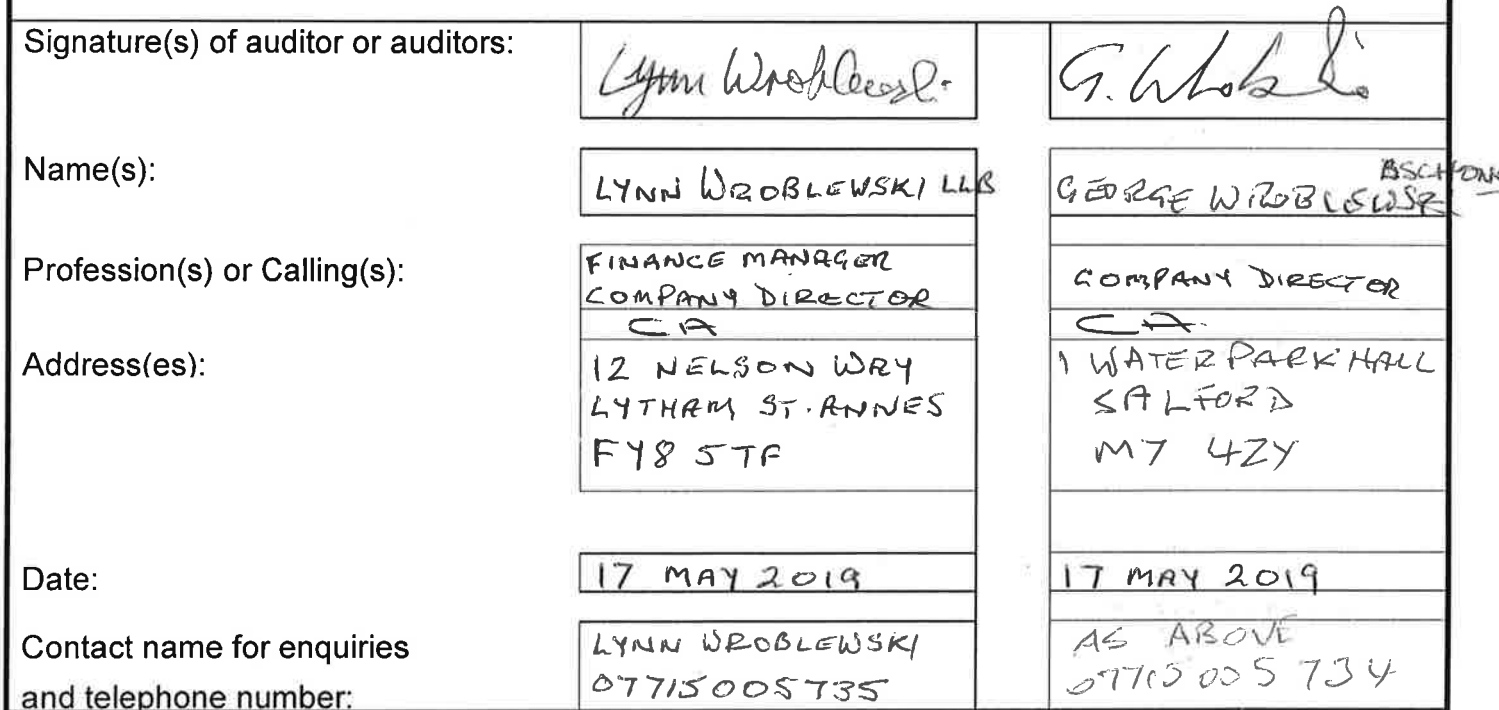 Signature(s) of auditor or auditors:
Lynn Wroblewski
G. Wroblewski
Name(s):
LYNN WROBLEWSKI LLB
BSCHONS
GEORGE WROBLEWSKI
Profession(s) or Calling(s):
FINANCE MANAGER
COMPANY DIRECTOR
CA
COMPANY DIRECTOR
CA
Address(es):
12 NELSON WAY
LYTHAM ST. ANNES
FY8 5TF
1 WATER PARK HALL
SALFORD
M7 4ZY
Date:
17 MAY 2019
17 MAY 2019
Contact name for enquiries
and telephone number:
LYNN WROBLEWSKI
07715005735
AS ABOVE
07715 005 734